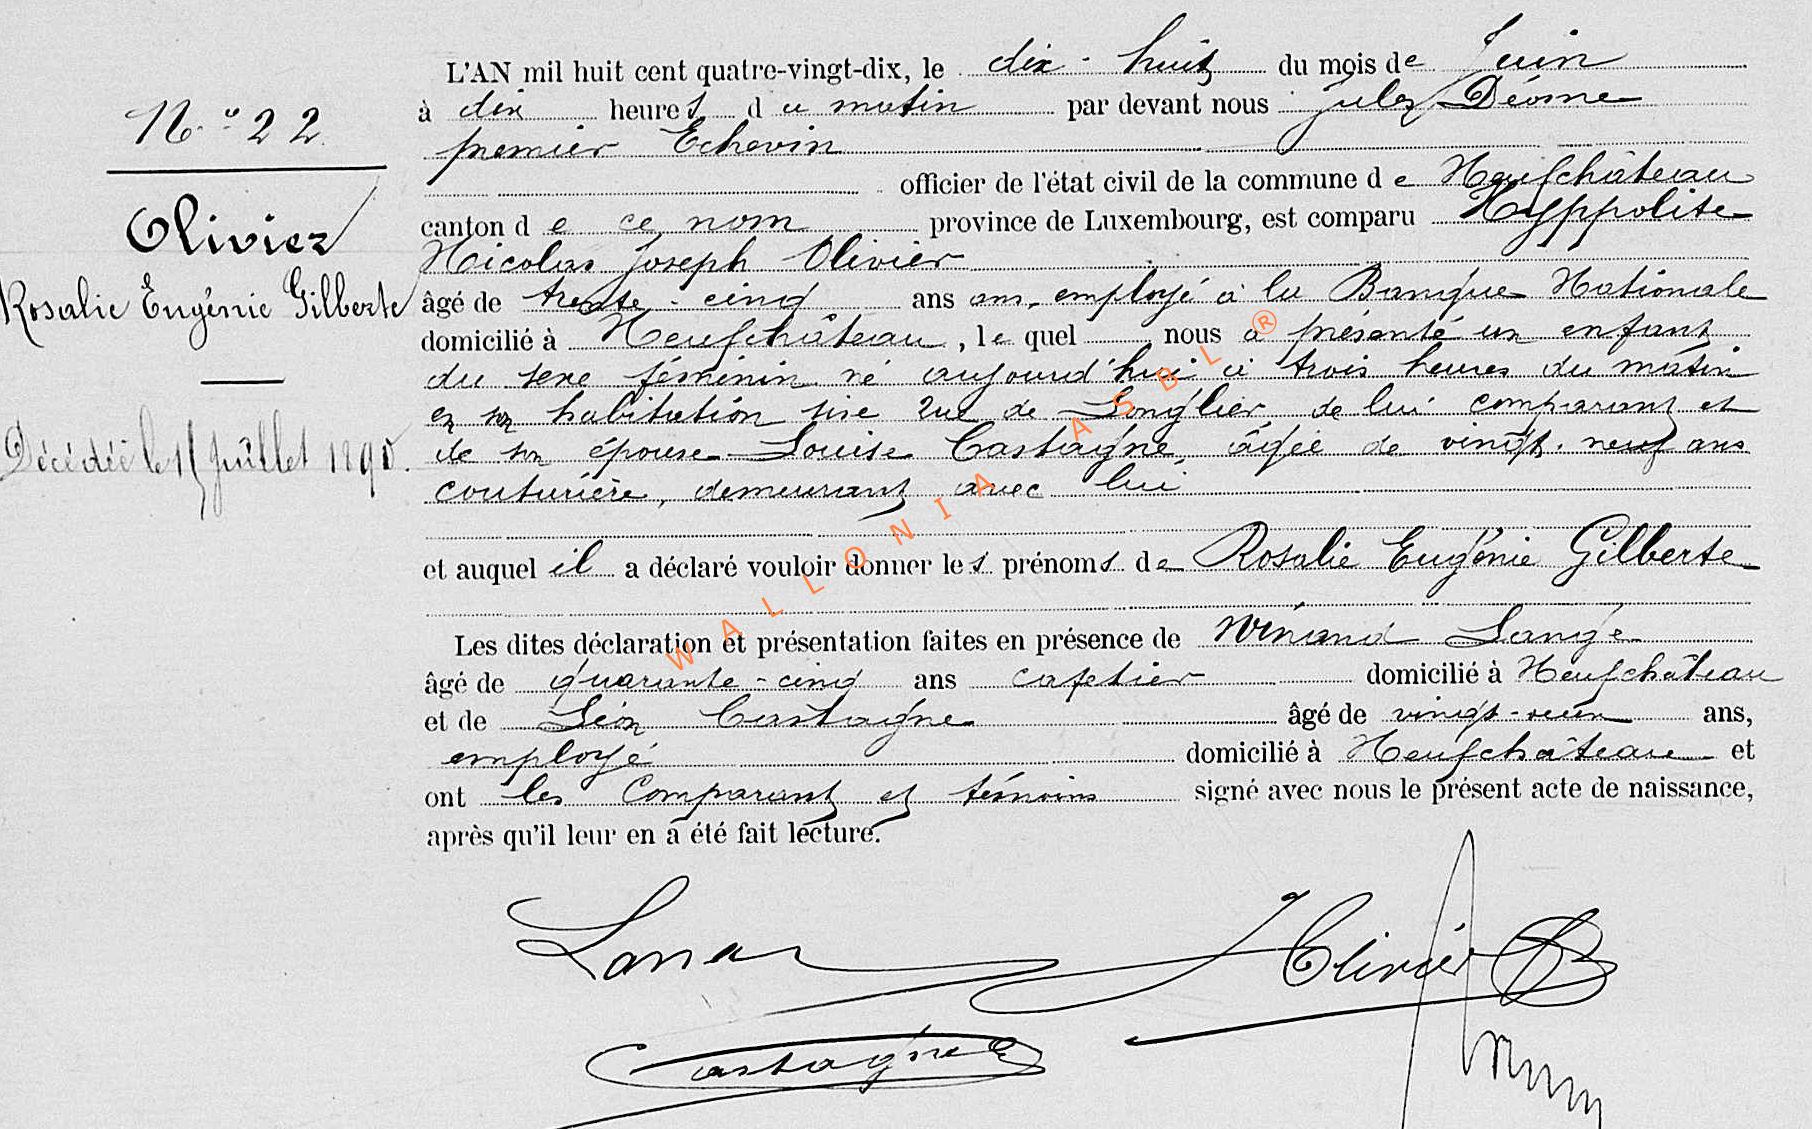 L'AN mil huit cent quatre-vingt-dix, le dix-huit du mois de Juin
à dix heures du matin par devant nous Jules Déome
premier Echevin
officier de l'état civil de la commune de Neufchâteau
canton de ce nom province de Luxembourg, est comparu Hyppolite
Nicolas Joseph Olivier
âgé de trente-cinq ans ans, employé à la Banque Nationale
domicilié à Neufchâteau, le quel nous a présenté un enfant
du sexe féminin né aujourd'hui à trois heures du matin
en son habitation sise rue de Longlier, de lui comparant et
de son épouse Louise Castaigne, âgée de vingt-neuf ans
couturière, demeurant avec lui
et auquel il a déclaré vouloir donner les prénoms de Rosalie Eugénie Gilberte
Les dites déclaration et présentation faites en présence de Winand Lange
âgé de quarante-cinq ans cafetier domicilié à Neufchâteau
et de Léon Castaigne âgé de ans,
employé domicilié à Neufchâteau et
ont les Comparant et témoins signé avec nous le présent acte de naissance,
après qu'il leur en a été fait lecture.
N.º 22
Olivier
Rosalie Eugénie Gilberte
Décédée le 15 Juillet 1890.
WALLONIA ASBL ®
Olivier
Castagne